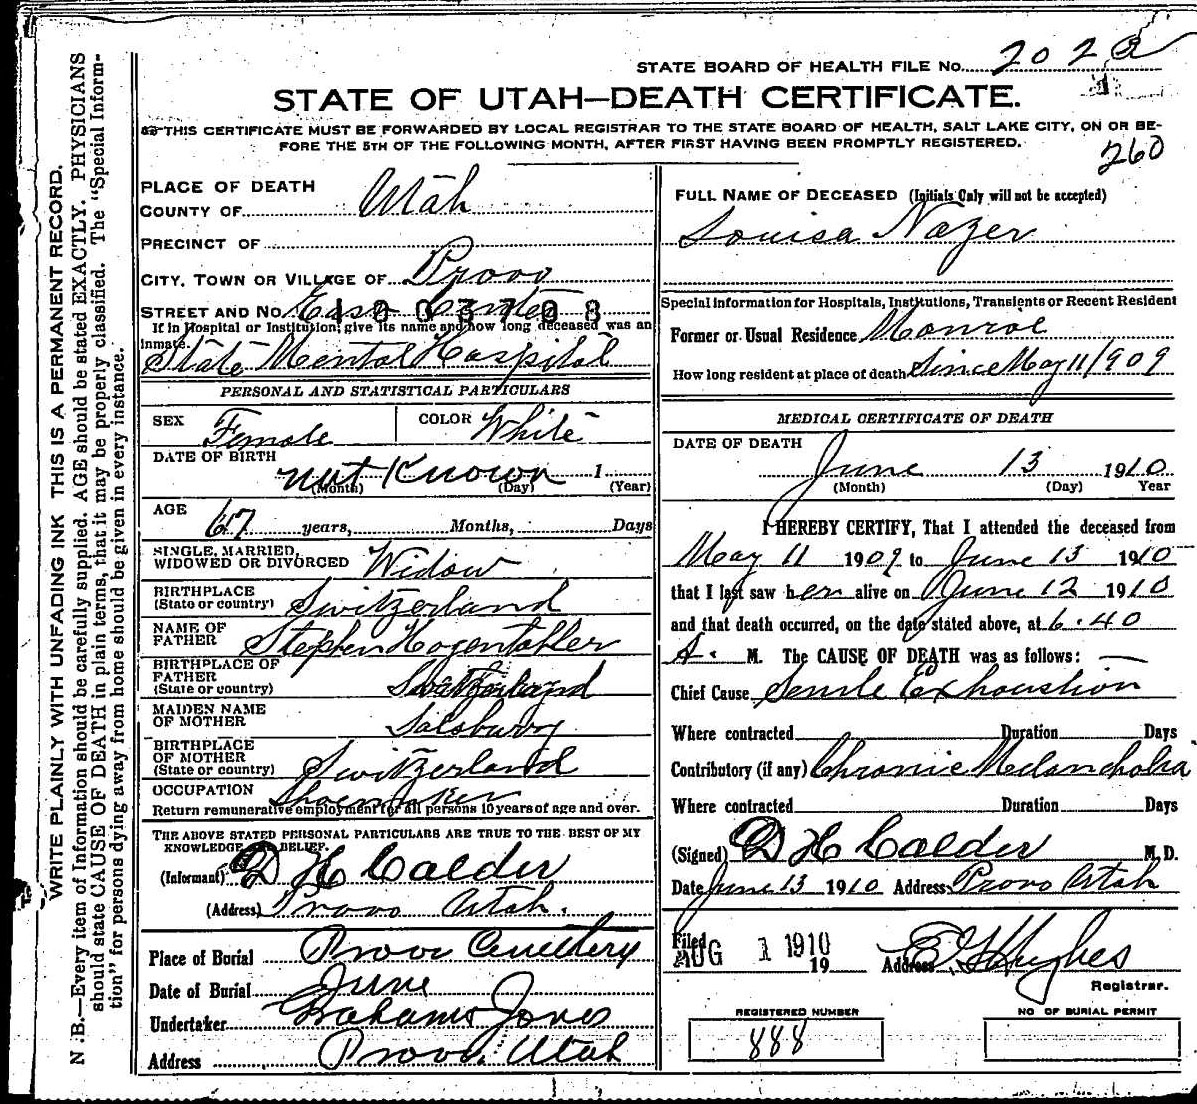 STATE BOARD OF HEALTH FILE No. 202
STATE OF UTAH—DEATH CERTIFICATE.
THIS CERTIFICATE MUST BE FORWARDED BY LOCAL REGISTRAR TO THE STATE BOARD OF HEALTH, SALT LAKE CITY, ON OR BE-
FORE THE 5TH OF THE FOLLOWING MONTH, AFTER FIRST HAVING BEEN PROMPTLY REGISTERED.
260
WRITE PLAINLY WITH UNFADING INK THIS IS A PERMANENT RECORD.
N.B.—Every item of Information should be carefully supplied. AGE should be stated EXACTLY. PHYSICIANS
should state CAUSE OF DEATH in plain terms, that it may be properly classified. The "Special Inform-
tion" for persons dying away from home should be given in every instance.
PLACE OF DEATH
COUNTY OF Utah
PRECINCT OF
CITY, TOWN OR VILLAGE OF Provo
STREET AND No. East Center
If in Hospital or Institution, give its name and how long deceased was an
inmate.
State Mental Hospital
PERSONAL AND STATISTICAL PARTICULARS
SEX Female COLOR White
DATE OF BIRTH not Known 1
(Month) (Day) (Year)
AGE 67 years, Months, Days
SINGLE, MARRIED,
WIDOWED OR DIVORCED Widow
BIRTHPLACE
(State or country) Switzerland
NAME OF
FATHER Stephen Hogentobler
BIRTHPLACE OF
FATHER
(State or country) Switzerland
MAIDEN NAME
OF MOTHER Salsburg
BIRTHPLACE
OF MOTHER
(State or country) Switzerland
OCCUPATION Shoemaker
Return remunerative employment for all persons 10 years of age and over.
THE ABOVE STATED PERSONAL PARTICULARS ARE TRUE TO THE BEST OF MY
KNOWLEDGE AND BELIEF.
(Informant) D H Calder
(Address) Provo Utah.
Place of Burial Provo Cemetery
Date of Burial June
Undertaker Grahams Jones
Address Provo, Utah
FULL NAME OF DECEASED (Initials Only will not be accepted)
Louisa Nazer
Special information for Hospitals, Institutions, Transients or Recent Resident
Former or Usual Residence Monroe
How long resident at place of death Since May 11/909
MEDICAL CERTIFICATE OF DEATH
DATE OF DEATH
June 13 1910
(Month) (Day) Year
I HEREBY CERTIFY, That I attended the deceased from
May 11 1909 to June 13 1910
that I last saw her alive on June 12 1910
and that death occurred, on the date stated above, at 6.40
A. M. The CAUSE OF DEATH was as follows:
Chief Cause Senile Exhaustion
Where contracted Duration Days
Contributory (if any) Chronic Melancholia
Where contracted Duration Days
(Signed) D H Calder M. D.
Date June 13 1910 Address Provo Utah
Filed
AUG 1 1910
19 Address E G Hughes
Registrar.
REGISTERED NUMBER
888
NO OF BURIAL PERMIT